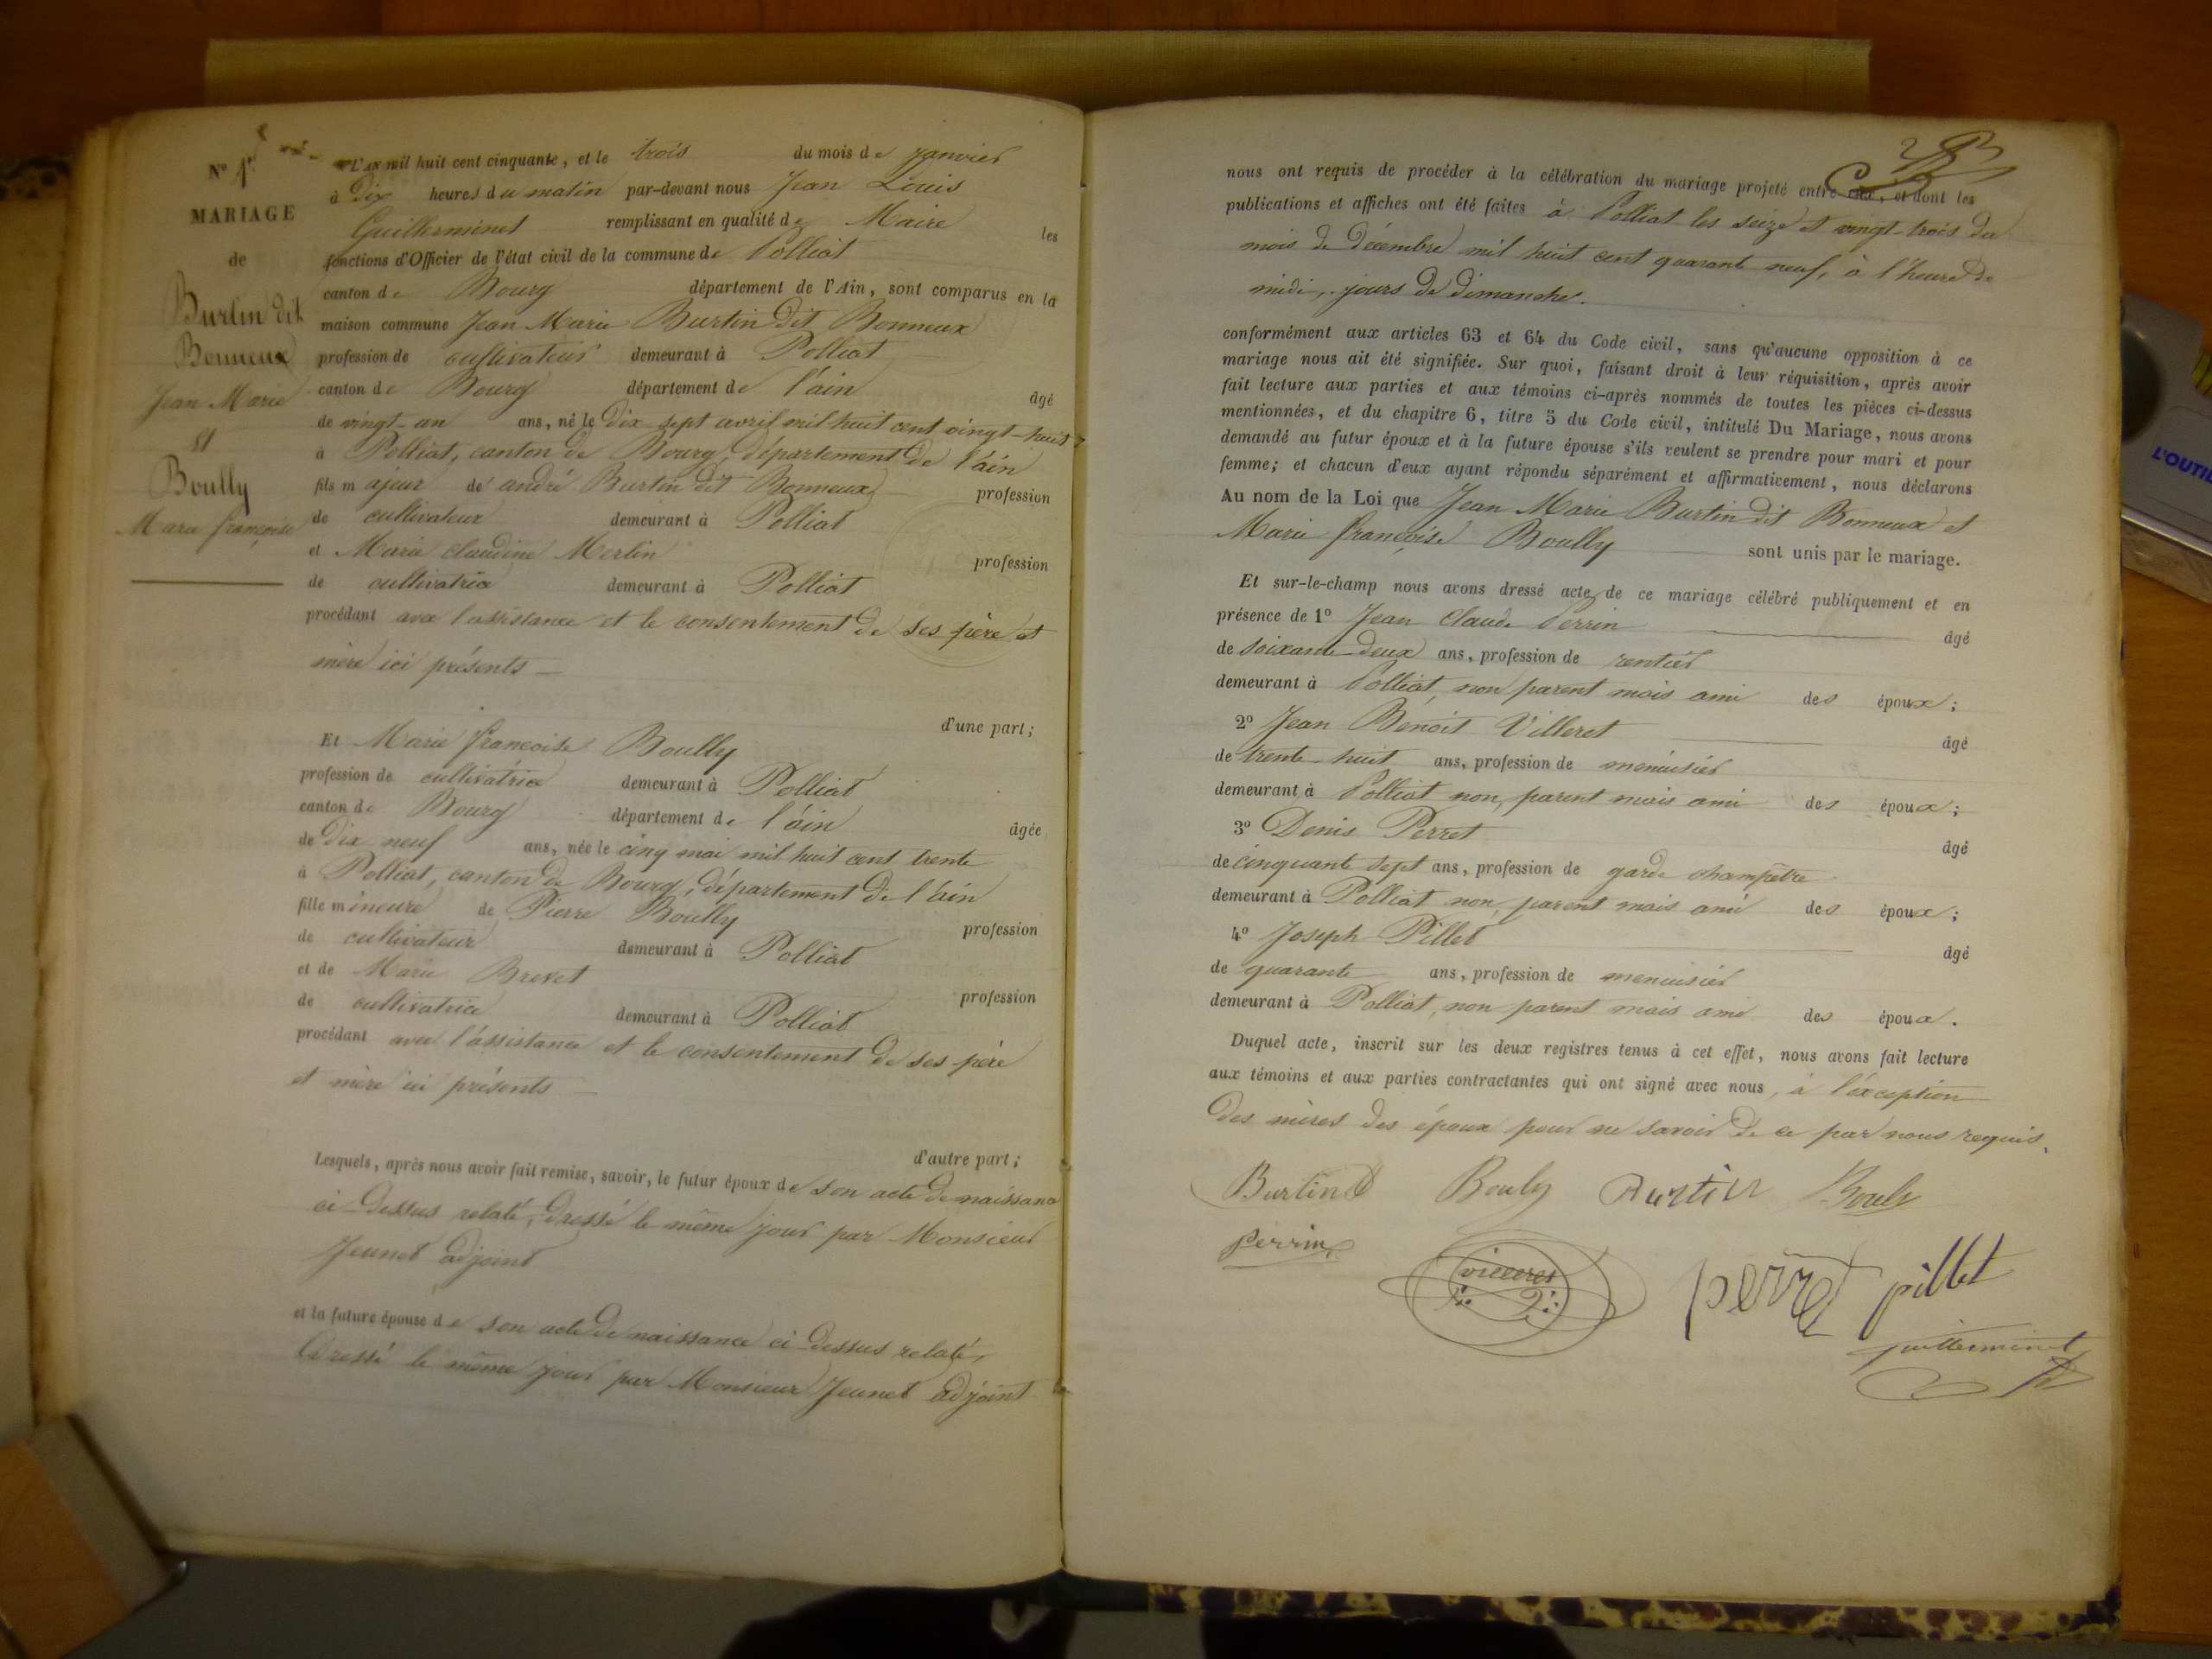 N° 1er
MARIAGE
de
Burtin dit
Bonneux
Jean Marie
et
Boully
Marie françoise
L'AN mil huit cent cinquante, et le trois du mois de janvier
à Dix heures du matin par-devant nous Jean Louis
Guillerminet remplissant en qualité de Maire les
fonctions d'Officier de l'état civil de la commune de Polliat
canton de Bourg département de l'Ain, sont comparus en la
maison commune Jean Marie Burtin dit Bonneux
profession de cultivateur demeurant à Polliat
canton de Bourg département de l'ain âgé
de vingt-un ans, né le dix-sept avril mil huit cent vingt-huit
à Polliat, canton de Bourg, département de l'ain
fils majeur de andré Burtin dit Bonneux profession
de cultivateur demeurant à Polliat
et Marie claudine Merlin profession
de cultivatrice demeurant à Polliat
procédant avec l'assistance et le consentement de ses père et
mère ici présents
d'une part;
Et Marie françoise Boully
profession de cultivatrice demeurant à Polliat
canton de Bourg département de l'ain âgée
de dix neuf ans, née le cinq mai mil huit cent trente
à Polliat, canton de Bourg, département de l'ain
fille mineure de Pierre Boully profession
de cultivateur demeurant à Polliat
et de Marie Brevet profession
de cultivatrice demeurant à Polliat
procédant avec l'assistance et le consentement de ses père
et mère ici présents
d'autre part;
Lesquels, après nous avoir fait remise, savoir, le futur époux de son acte de naissance
ci-dessus relaté, dressé le même jour par Monsieur
Jeunet adjoint
et la future épouse de son acte de naissance ci-dessus relaté,
dressé le même jour par Monsieur Jeunet adjoint
nous ont requis de procéder à la célébration du mariage projeté entre eux, et dont les
publications et affiches ont été faites à Polliat les seize et vingt-trois du
mois de décembre mil huit cent quarante neuf, à l'heure de
midi, jours de dimanche.
conformément aux articles 63 et 64 du Code civil, sans qu'aucune opposition à ce
mariage nous ait été signifiée. Sur quoi, faisant droit à leur réquisition, après avoir
fait lecture aux parties et aux témoins ci-après nommés de toutes les pièces ci-dessus
mentionnées, et du chapitre 6, titre 5 du Code civil, intitulé Du Mariage, nous avons
demandé au futur époux et à la future épouse s'ils veulent se prendre pour mari et pour
femme; et chacun d'eux ayant répondu séparément et affirmativement, nous déclarons
Au nom de la Loi que Jean Marie Burtin dit Bonneux et
Marie françoise Boully sont unis par le mariage.
Et sur-le-champ nous avons dressé acte de ce mariage célébré publiquement et en
présence de 1° Jean claude Perrin âgé
de soixante deux ans, profession de rentier
demeurant à Polliat, non parent mais ami des époux;
2° Jean Benoit Villeret âgé
de trente-huit ans, profession de menuisier
demeurant à Polliat non parent mais ami des époux;
3° Denis Perret âgé
de cinquante sept ans, profession de garde champêtre
demeurant à Polliat non parent mais ami des époux;
4° Joseph Pillet âgé
de quarante ans, profession de menuisier
demeurant à Polliat, non parent mais ami des époux.
Duquel acte, inscrit sur les deux registres tenus à cet effet, nous avons fait lecture
aux témoins et aux parties contractantes qui ont signé avec nous, à l'exception
des mères des époux pour ne savoir de ce par nous requis.
Burtin Bouly Burtin Bouly
perrin
villeret perret pillet
guillerminet
L'OUTI